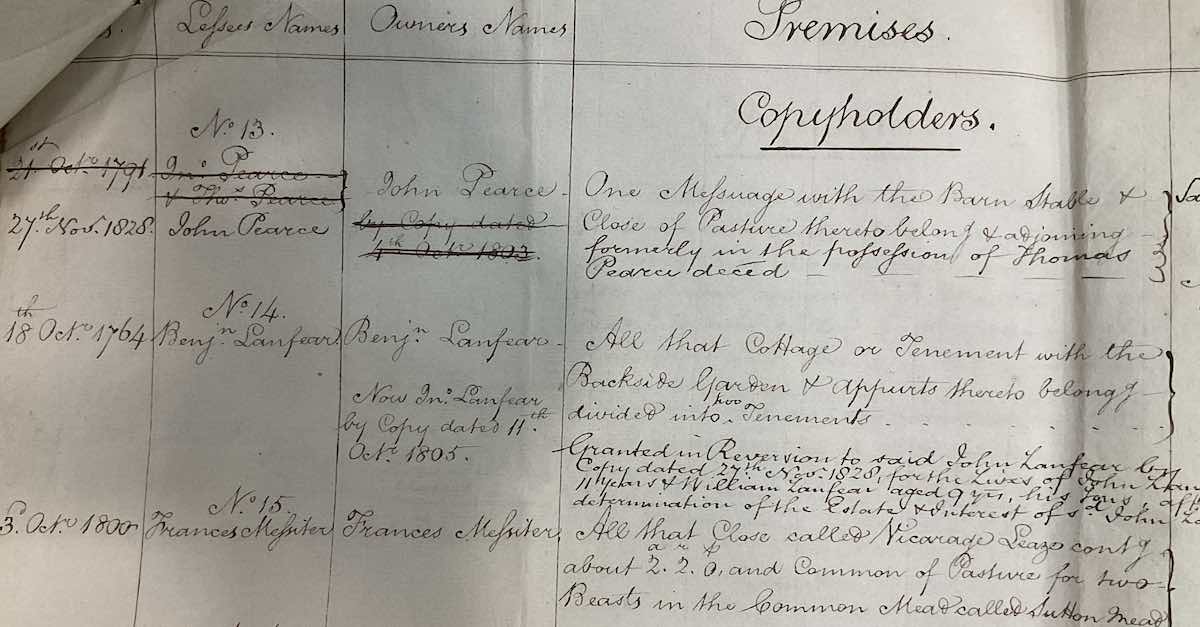 Lessees Names Owners Names Premises.
Copyholders.
No. 13.
21st Octr. 1791 Jno. Pearce
& Thos. Pearce
27th Nov. 1828. John Pearce
John Pearce
by Copy dated
4th Octr. 1803.
One Messuage with the Barn Stable &
Close of Pasture thereto belong g & adjoining
formerly in the possession of Thomas
Pearce deced
No. 14.
18th Octr. 1764 Benjn. Lanfear Benjn. Lanfear
Now Jno. Lanfear
by Copy dated 11th.
Octr. 1805.
All that Cottage or Tenement with the
Backside Garden & appurts thereto belong g
divided into two Tenements
Granted in Reversion to said John Lanfear by
Copy dated 27th Nov. 1828, for the Lives of John
11 years & William Lanfear aged 9 yrs, his Sons
determination of the Estate & Interest of sd. John
No. 15.
Octr. 1800 Frances Messiter Frances Messiter
All that Close called Vicarage Leaze cont g
a r p
about 2. 2. 0, and Common of Pasture for two
Beasts in the Common Mead called Sutton Mead